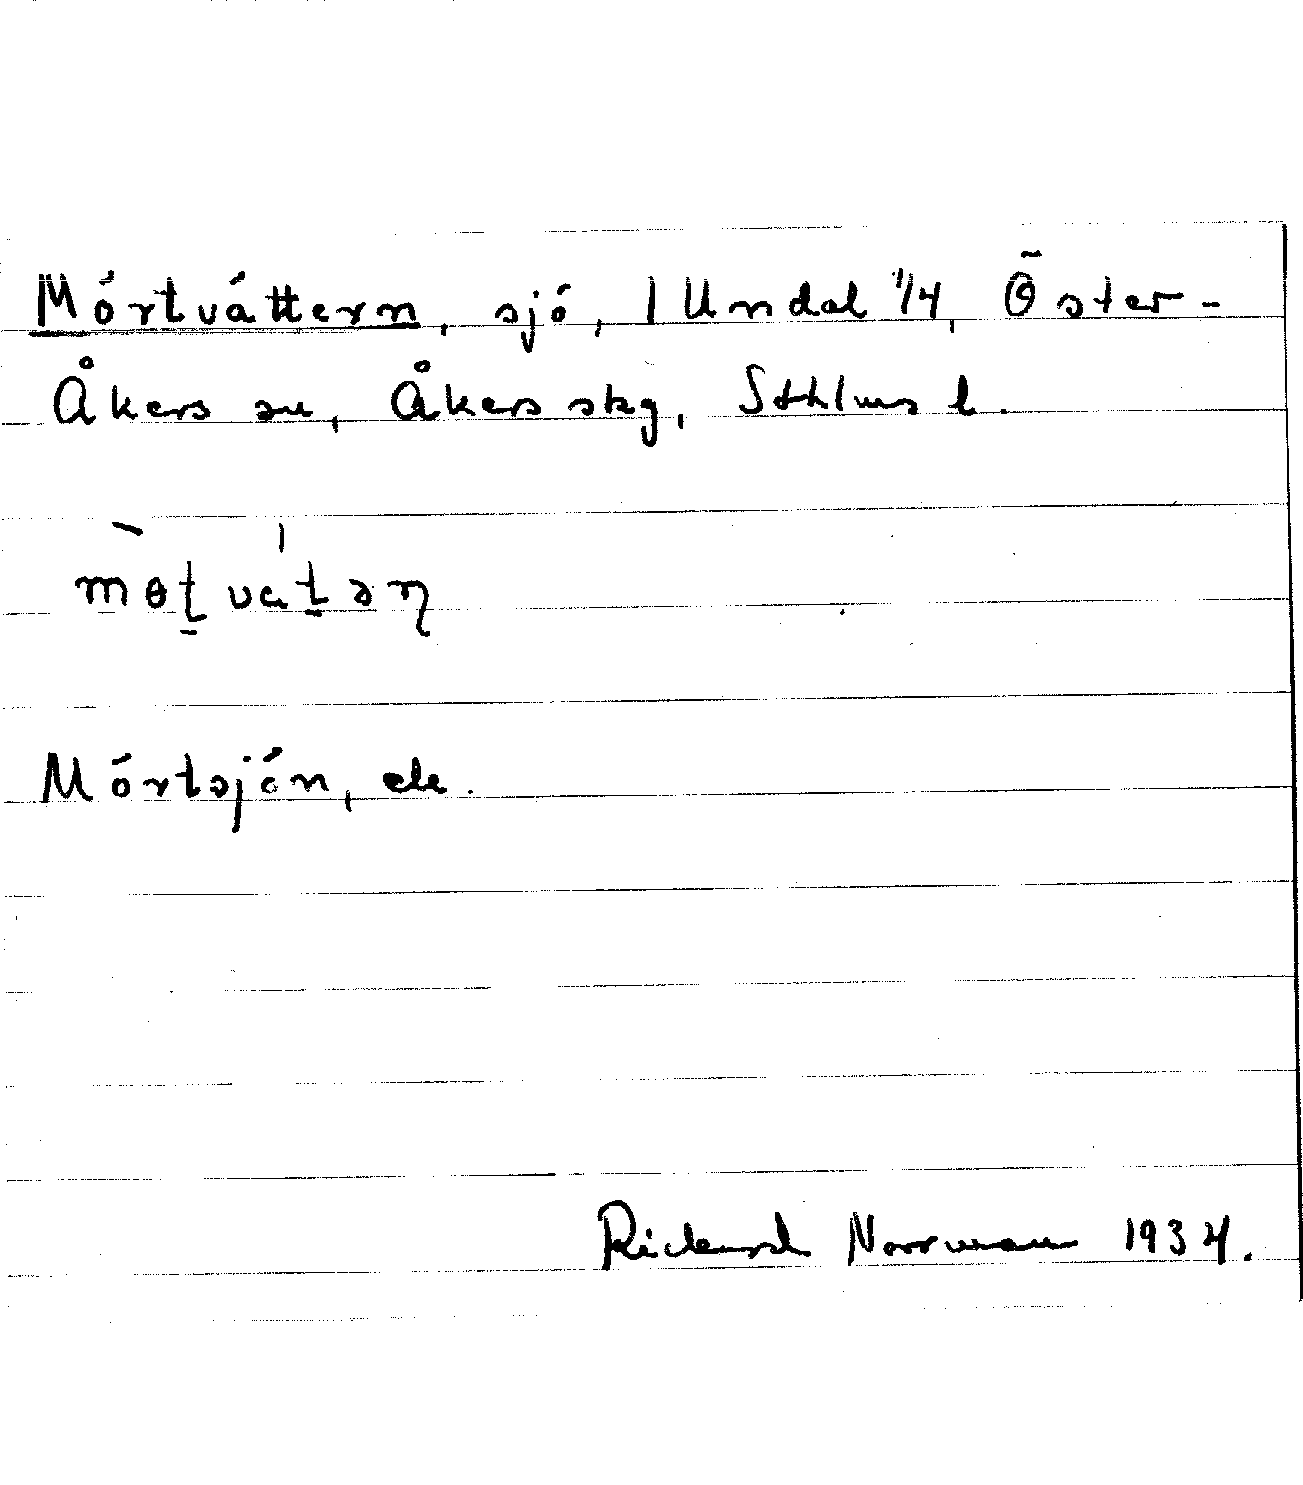 Mörtvättern, sjö, 1 Undal 1/4, Öster-
Åkers sn, Åkers skg, Sthlms l.
mötvätəɳ
Mörtsjön, ek.
Rickard Norrman 1934.